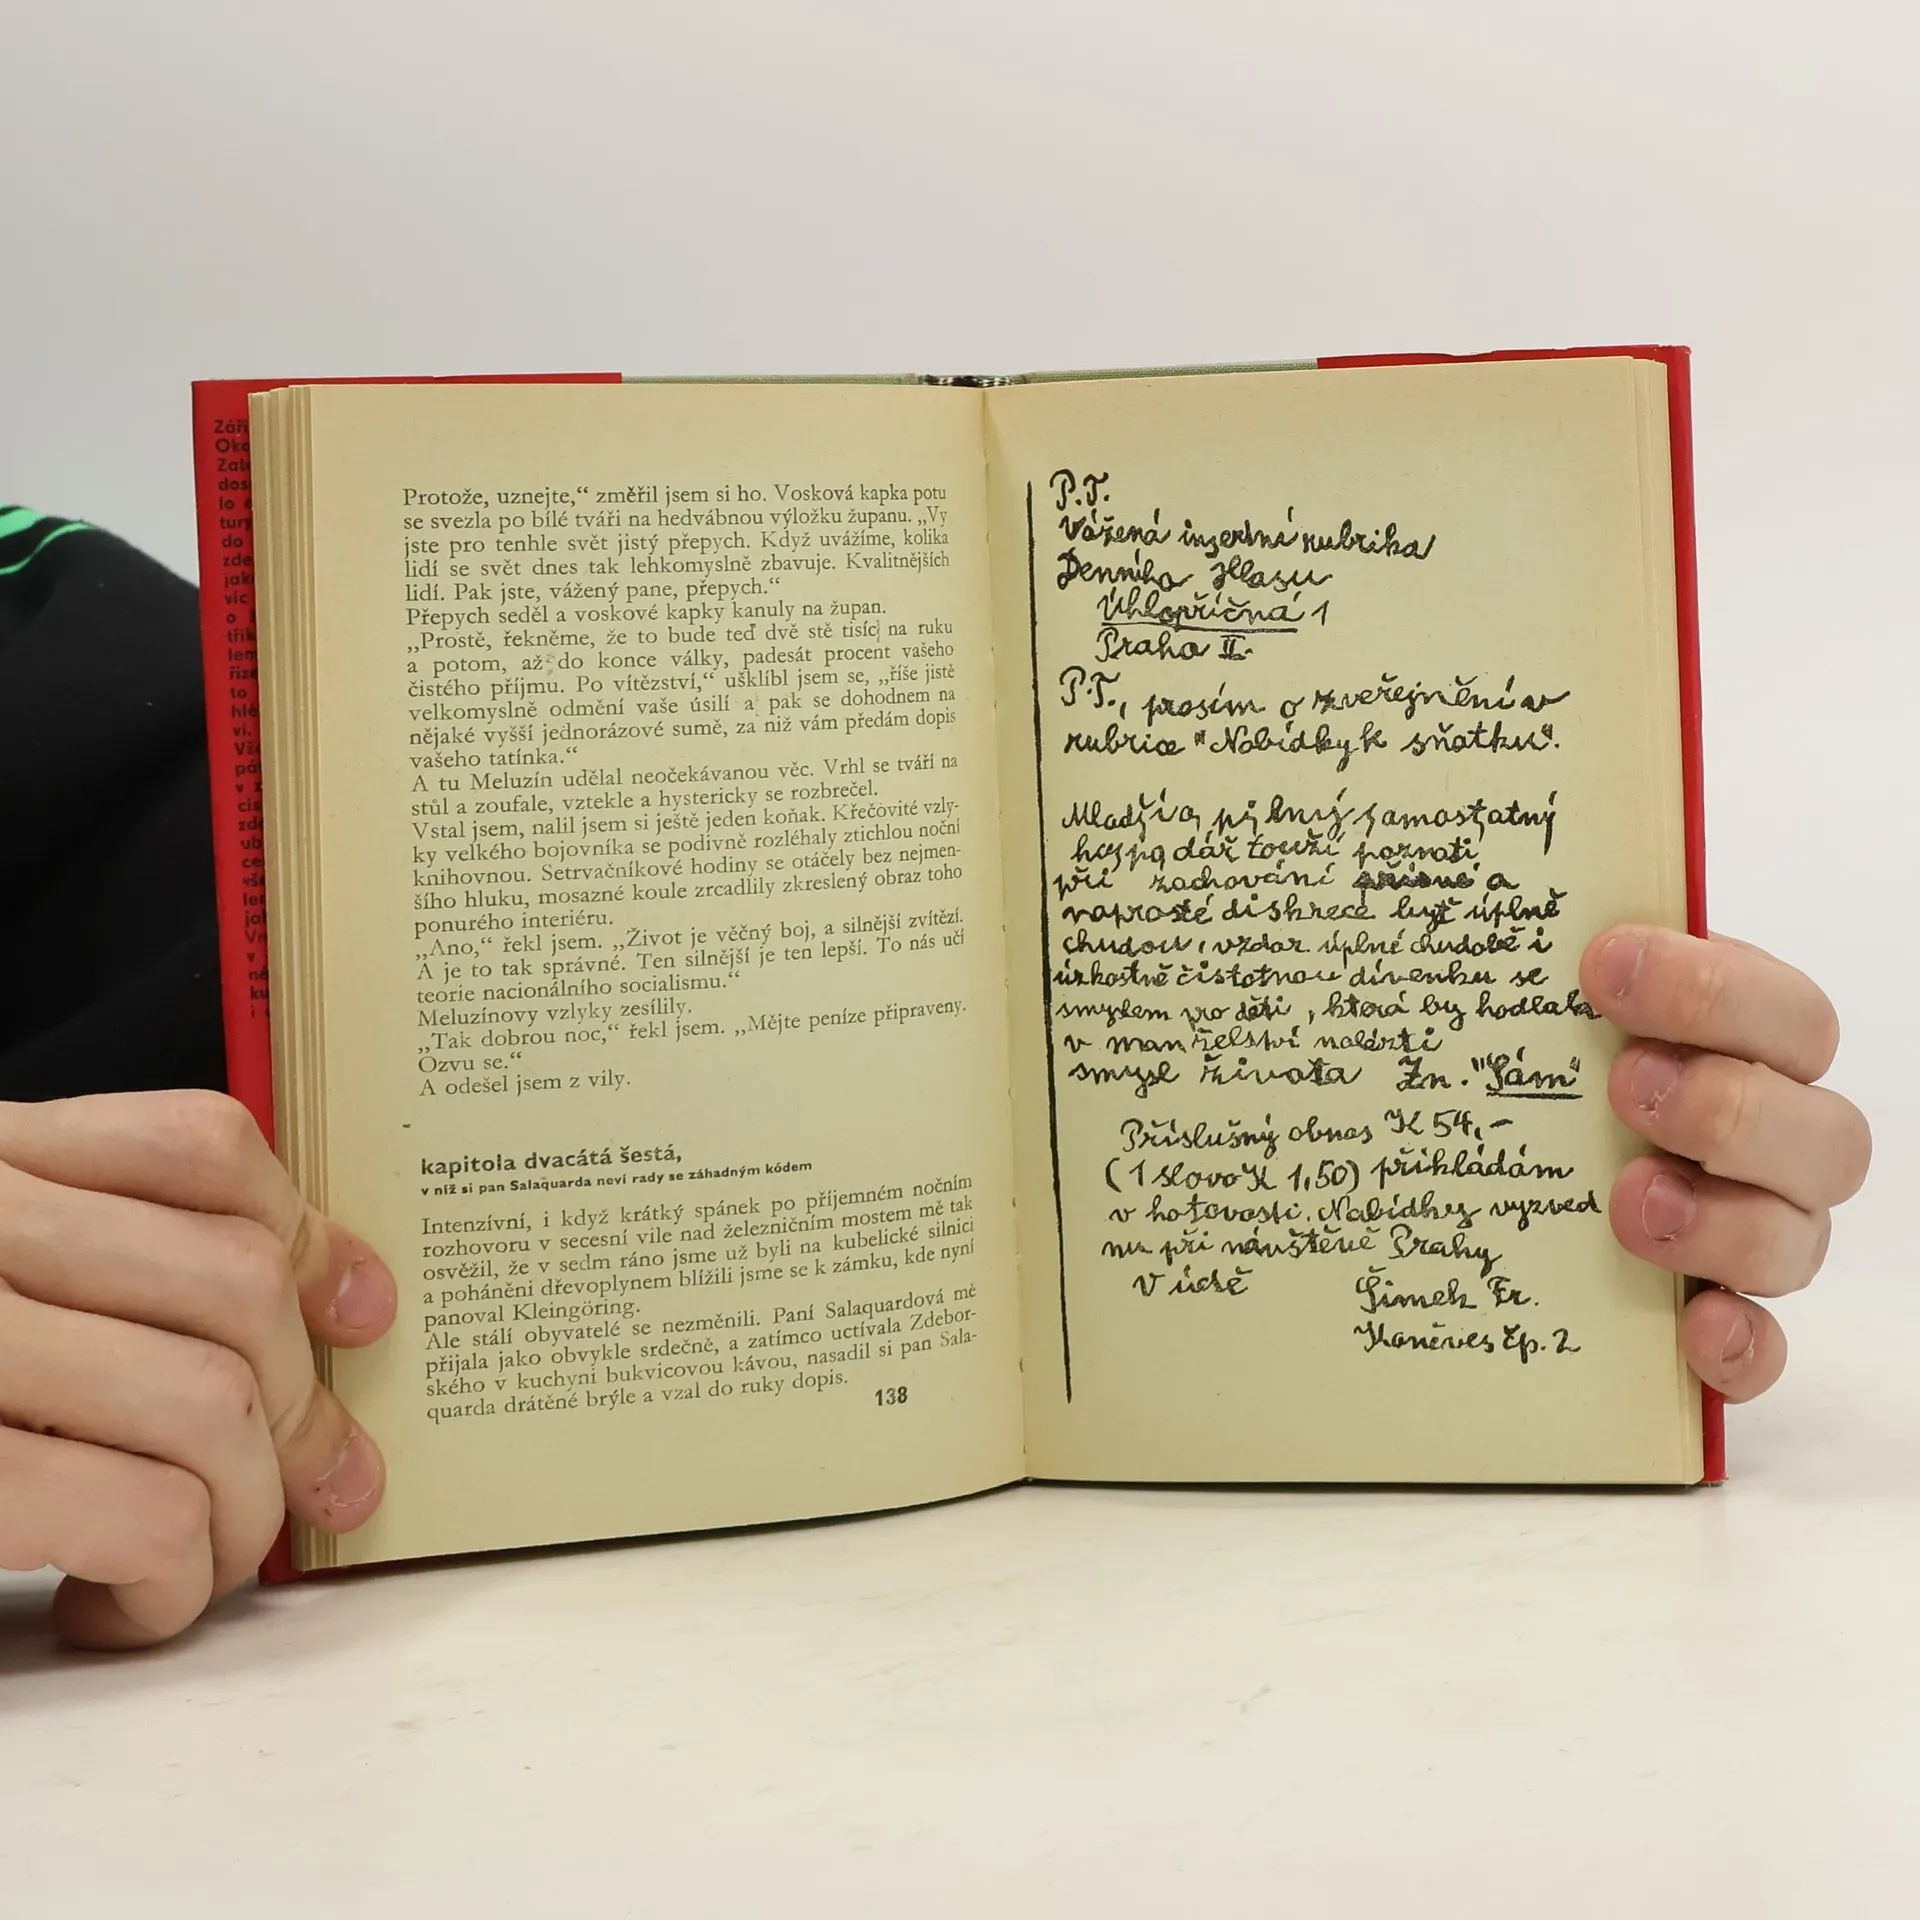 Protože, uznejte,“ změřil jsem si ho. Vosková kapka potu
se svezla po bílé tváři na hedvábnou výložku županu. „Vy
jste pro tenhle svět jistý přepych. Když uvážíme, kolika
lidí se svět dnes tak lehkomyslně zbavuje. Kvalitnějších
lidí. Pak jste, vážený pane, přepych.“
Přepych seděl a voskové kapky kanuly na župan.
„Prostě, řekněme, že to bude teď dvě stě tisíc na ruku
a potom, až do konce války, padesát procent vašeho
čistého příjmu. Po vítězství,“ ušklíbl jsem se, „říše jistě
velkomyslně odmění vaše úsilí a pak se dohodnem na
nějaké vyšší jednorázové sumě, za niž vám předám dopis
vašeho tatínka.“
A tu Meluzín udělal neočekávanou věc. Vrhl se tváří na
stůl a zoufale, vztekle a hystericky se rozbrečel.
Vstal jsem, nalil jsem si ještě jeden koňak. Křečovité vzly-
ky velkého bojovníka se podivně rozléhaly ztichlou noční
knihovnou. Setrvačníkové hodiny se otáčely bez nejmen-
šího hluku, mosazné koule zrcadlily zkreslený obraz toho
ponurého interiéru.
„Ano,“ řekl jsem. „Život je věčný boj, a silnější zvítězí.
A je to tak správné. Ten silnější je ten lepší. To nás učí
teorie nacionálního socialismu.“
Meluzínovy vzlyky zesílily.
„Tak dobrou noc,“ řekl jsem. „Mějte peníze připraveny.
Ozvu se.“
A odešel jsem z vily.
kapitola dvacátá šestá,
v níž si pan Salaquarda neví rady se záhadným kódem
Intenzívní, i když krátký spánek po příjemném nočním
rozhovoru v secesní vile nad železničním mostem mě tak
osvěžil, že v sedm ráno jsme už byli na kubelické silnici
a poháněni dřevoplynem blížili jsme se k zámku, kde nyní
panoval Kleingöring.
Ale stálí obyvatelé se nezměnili. Paní Salaquardová mě
přijala jako obvykle srdečně, a zatímco uctívala Zdebor-
ského v kuchyni bukvicovou kávou, nasadil si pan Sala-
quarda drátěné brýle a vzal do ruky dopis.
138
P.T.
Vážená inzertní rubrika
Denního Hlasu
Úhlopříčná 1
Praha II.
P.T., prosím o zveřejnění v
rubrice "Nabídky k sňatku".
Mladší a pilný samostatný
hospodář touží poznati
při zachování přísné a
naprosté diskrece byť úplně
chudou, vzdor úplné chudobě i
úzkostně čistotnou dívenku se
smyslem pro děti, která by hodlala
v manželství nalézti
smysl života Zn. "Sám"
Příslušný obnos K 54,-
(1 slovo K 1,50) přikládám
v hotovosti. Nabídky vyzved
nu při návštěvě Prahy
V úctě
Šimek Fr.
Koněves čp. 2